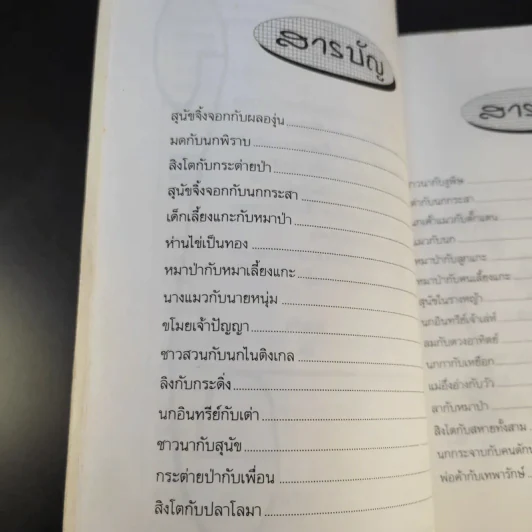 สารบัญ
สุนัขจิ้งจอกกับผลองุ่น
มดกับนกพิราบ
สิงโตกับกระต่ายป่า
สุนัขจิ้งจอกกับนกกระสา
เด็กเลี้ยงแกะกับหมาป่า
ห่านไข่เป็นทอง
หมาป่ากับหมาเลี้ยงแกะ
นางแมวกับนายหนุ่ม
ขโมยเจ้าปัญญา
ชาวสวนกับนกไนติงเกล
ลิงกับกระดิ่ง
นกอินทรีย์กับเต่า
ชาวนากับสุนัข
กระต่ายป่ากับเพื่อน
สิงโตกับปลาโลมา
สาร
าวนากับงูพิษ
กับนกกระสา
แมวกับนก
หมาป่ากับลูกแกะ
หมาป่ากับคนเลี้ยงแกะ
สุนัขในรางหญ้า
นกอินทรีย์เจ้าเล่ห์
ลมกับดวงอาทิตย์
นกกากับเหยือก
แม่อึ่งอ่างกับวัว
ลากับหมาป่า
สิงโตกับสหายทั้งสาม
นกกระจาบกับคนดักน
พ่อค้ากับเทพารักษ์